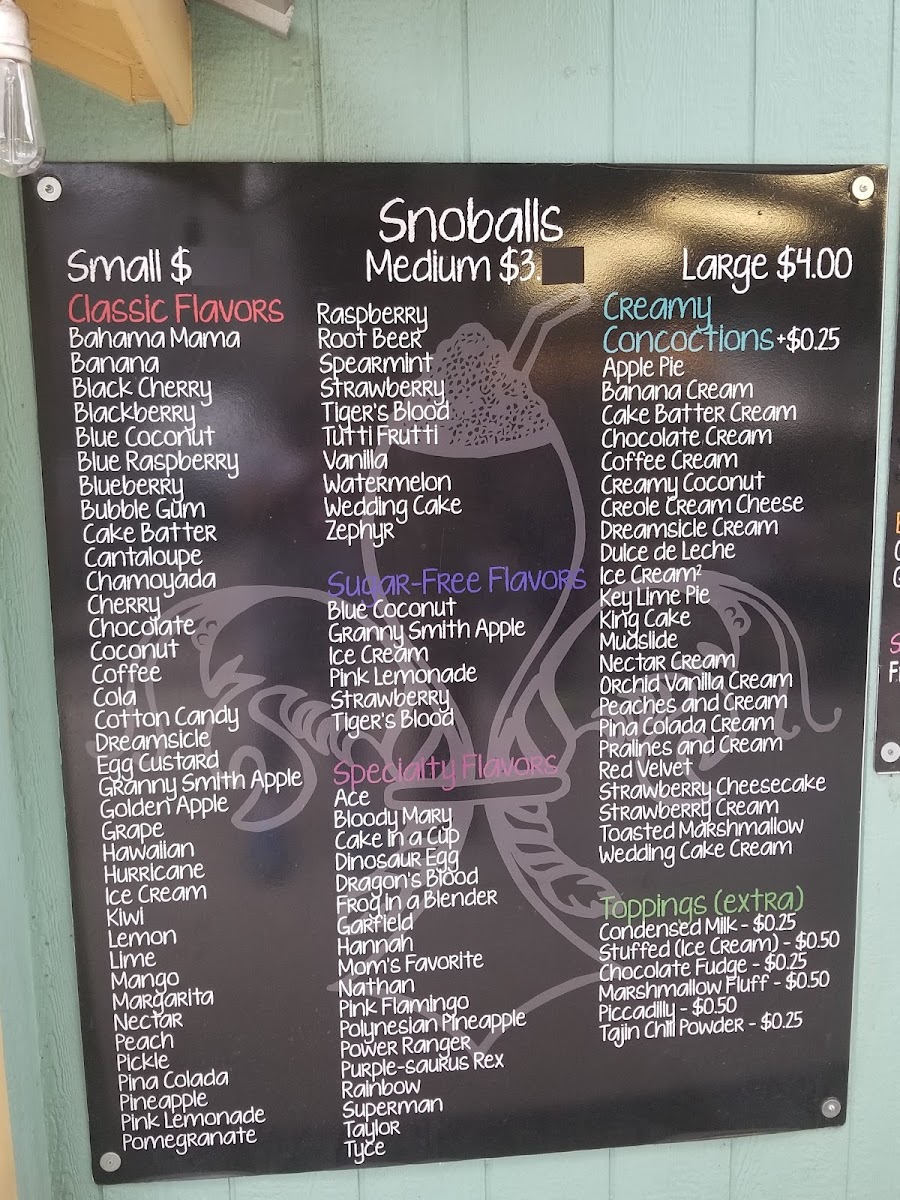 Snoballs
Small $
Medium $3.
Large $4.00
Classic Flavors
Bahama Mama
Banana
Black Cherry
Blackberry
Blue Coconut
Blue Raspberry
Blueberry
Bubble Gum
Cake Batter
Cantaloupe
Chamoyada
Cherry
Chocolate
Coconut
Coffee
Cola
Cotton Candy
Dreamsicle
Egg Custard
Granny Smith Apple
Golden Apple
Grape
Hawaiian
Hurricane
Ice Cream
Kiwi
Lemon
Lime
Mango
Margarita
Nectar
Peach
Pickle
Pina Colada
Pineapple
Pink Lemonade
Pomegranate
Raspberry
Root Beer
Spearmint
Strawberry
Tiger's Blood
Tutti Frutti
Vanilla
Watermelon
Wedding Cake
Zephyr
Sugar-Free Flavors
Blue Coconut
Granny Smith Apple
Ice Cream
Pink Lemonade
Strawberry
Tiger's Blood
Specialty Flavors
Ace
Bloody Mary
Cake In a Cup
Dinosaur Egg
Dragon's Blood
Frog in a Blender
Garfield
Hannah
Mom's Favorite
Nathan
Pink Flamingo
Polynesian Pineapple
Power Ranger
Purple-saurus Rex
Rainbow
Superman
Taylor
Tyce
Creamy
Concoctions +$0.25
Apple Pie
Banana Cream
Cake Batter Cream
Chocolate Cream
Coffee Cream
Creamy Coconut
Creole Cream Cheese
Dreamsicle Cream
Dulce de Leche
Ice Cream²
Key Lime Pie
King Cake
Mudslide
Nectar Cream
Orchid Vanilla Cream
Peaches and Cream
Pina Colada Cream
Pralines and Cream
Red Velvet
Strawberry Cheesecake
Strawberry Cream
Toasted Marshmallow
Wedding Cake Cream
Toppings (extra)
Condensed Milk - $0.25
Stuffed (Ice Cream) - $0.50
Chocolate Fudge - $0.25
Marshmallow Fluff - $0.50
Piccadilly - $0.50
Tajin Chili Powder - $0.25